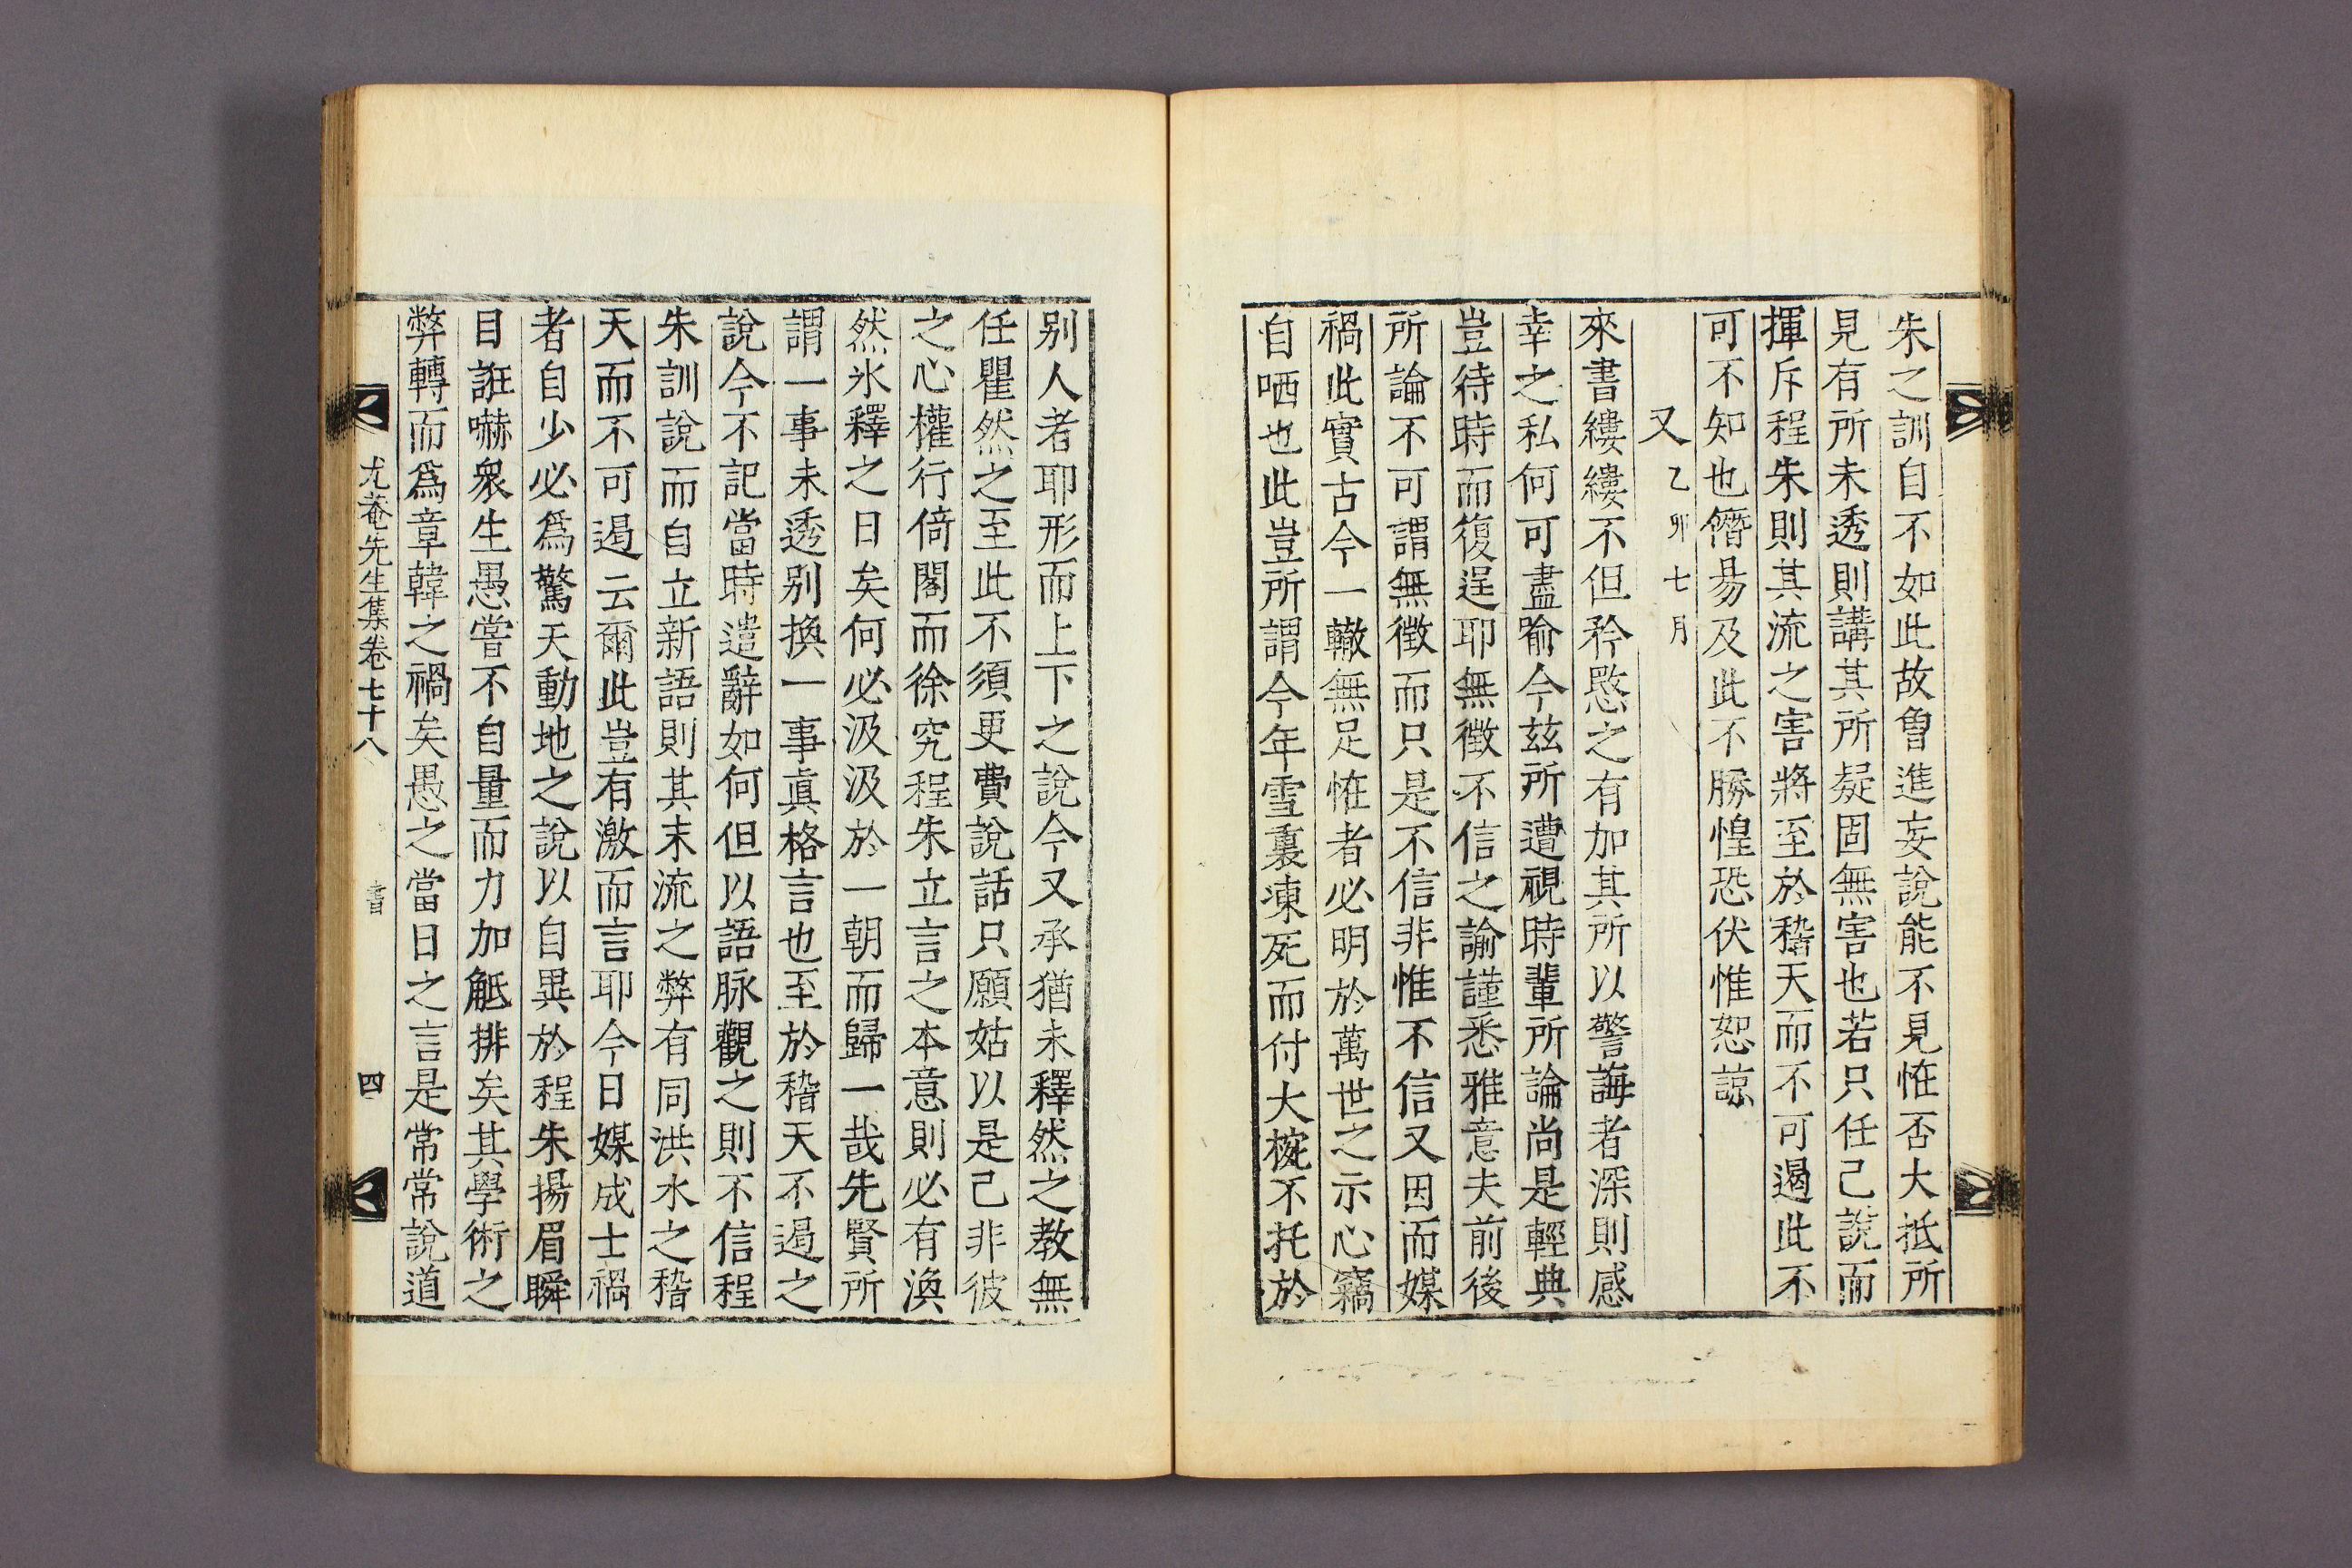 朱之訓自不如此故曾進妄說能不見恠否大抵所
見有所未透則講其所疑固無害也若只任己說而
揮斥程朱則其流之害將至於稽天而不可遏此不
可不知也僭昜及此不勝惶恐伏惟恕諒
又乙卯七月
來書縷縷不但矜愍之有加其所以警誨者深則感
幸之私何可盡喻今玆所遭視時輩所論尚是輕典
豈待時而復逞耶無徵不信之諭謹悉雅意夫前後
所論不可謂無徵而只是不信非惟不信又因而媒
禍此實古今一轍無足恠者必明於萬世之示心竊
自哂也此豈所謂今年雪裏凍死而付大椀不托於
別人者耶形而上下之說今又承猶未釋然之教無
任瞿然之至此不須更費說話只願姑以是己非彼
之心權行倚閣而徐究程朱立言之本意則必有渙
然氷釋之日矣何必汲汲於一朝而歸一哉先賢所
謂一事未透別換一事眞格言也至於稽天不遏之
說今不記當時遣辭如何但以語脉觀之則不信程
朱訓說而自立新語則其末流之弊有同洪水之稽
天而不可遏云爾此豈有激而言耶今日媒成士禍
者自少必爲驚天動地之說以自異於程朱揚眉瞬
目誑嚇衆生愚嘗不自量而力加觝排矣其學術之
弊轉而爲章韓之禍矣愚之當日之言是常常說道
尤菴先生集卷七十八
書
四